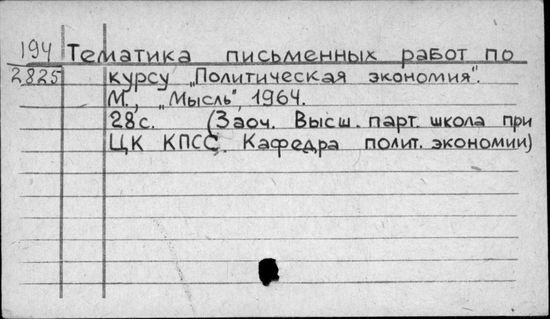 194 Тематика письменных работ по
2825 курсу „Политическая экономия".
М., „Мысль", 1964.
28с. (Заоч. Высш. парт. школа при
ЦК КПСС. Кафедра полит. экономии)